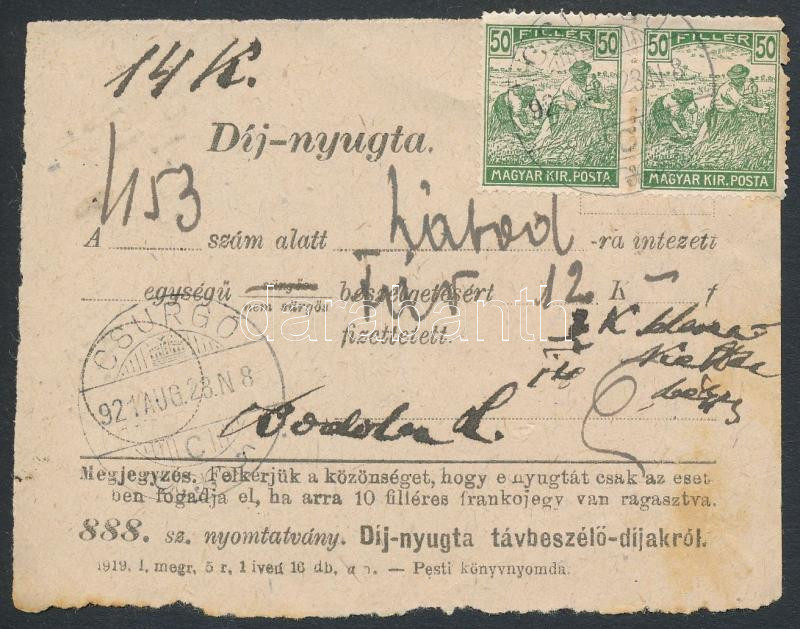 50 FILLÉR 50 50 FILLÉR 50
MAGYAR KIR. POSTA MAGYAR KIR. POSTA
14 K.
Díj-nyugta.
1153
A szám alatt Lábod -ra intézett
egységű sürgős nem sürgős beszélgetésért 12 K f
fizettetett.
CSURGÓ
921 AUG. 23. N 8
C
Megjegyzés. Felkérjük a közönséget, hogy e nyugtát csak az eset
ben fogadja el, ha arra 10 filléres frankojegy van ragasztva.
888. sz. nyomtatvány. Díj-nyugta távbeszélő-díjakról.
1919. I, megr, 5 r, 1 ívell 16 db, — Pesti könyvnyomda.
darabanth